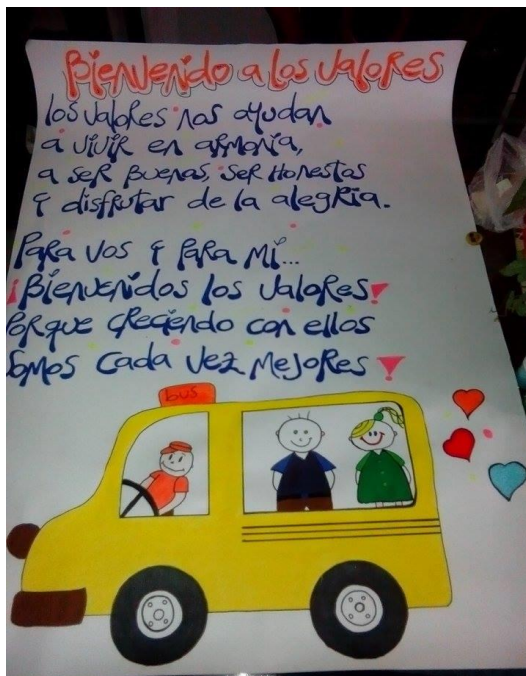 Bienvenido a los valores
los valores nos ayudan
a vivir en armonía,
a ser buenas, ser Honestas
Y disfrutar de la alegria.
Para vos Y Para Mí...
¡Bienvenidos los valores!
Porque creciendo con ellos
Somos cada vez Mejores!
bus